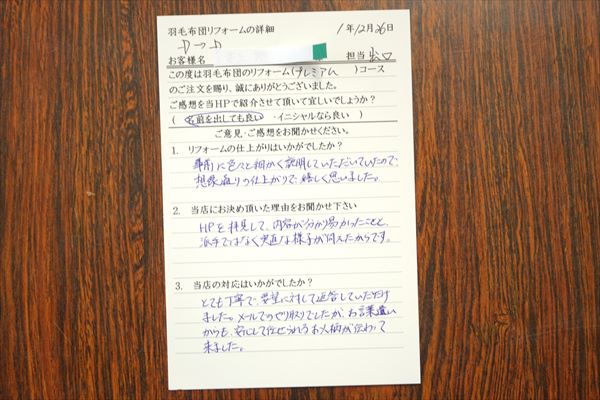 羽毛布団リフォームの詳細 1年12月26日
D→D
お客様名 担当 出口
この度は羽毛布団のリフォーム(プレミアム )コース
のご注文を賜り、誠にありがとうございました。
ご感想を当HPで紹介させて頂いて宜しいでしょうか?
( 名前を出しても良い ・イニシャルなら良い )
ご意見・ご感想をお聞かせください。
1. リフォームの仕上がりはいかがでしたか?
事前に色々と細かく説明していただいていたので、
想像通りの仕上がりで、嬉しく思いました。
2. 当店にお決め頂いた理由をお聞かせ下さい
HPを拝見して、内容が分かり易かったことと、
派手ではなく実直な様子が伺えたからです。
3. 当店の対応はいかがでしたか?
とても丁寧で、要望に対して返答していただけ
ました。メールでのやり取りでしたが、お言葉遣い
からも、安心して任せられるお人柄が伝わって
来ました。